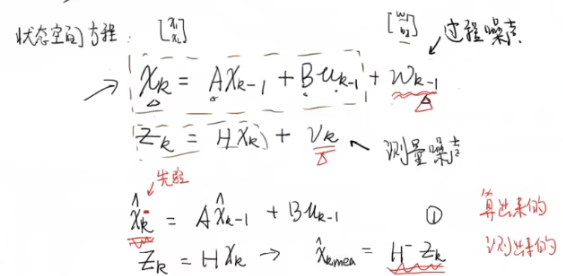 状态空间方程: [x₁ x₂] [w₁ w₂] 过程噪声
X_k = AX_{k-1} + Bu_{k-1} + w_{k-1}
Z_k = HX_k + v_k 测量噪声
先验
x̂_k⁻ = Ax̂_{k-1} + Bu_{k-1} ① 算出来的
Z_k = HX_k → x̂_{kmea} = H⁻Z_k 测出来的